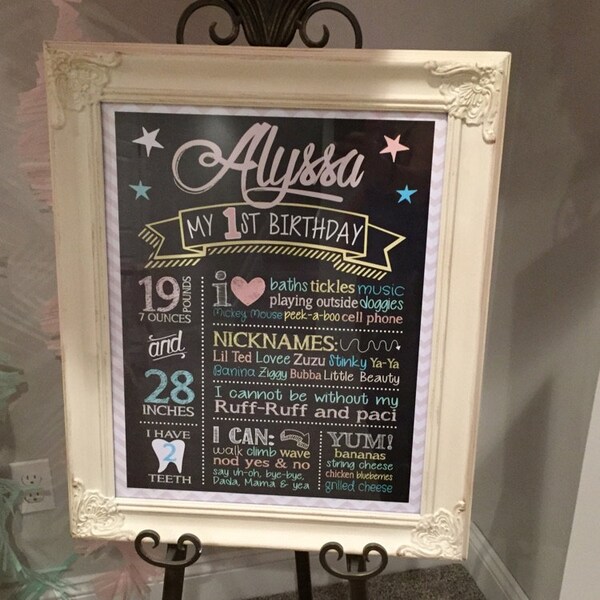 Alyssa
MY 1ST BIRTHDAY
19 POUNDS
7 OUNCES
and
28
INCHES
I HAVE
2
TEETH
i
baths tickles music
playing outside doggies
Mickey Mouse peek-a-boo cell phone
NICKNAMES:
Lil Ted Lovee Zuzu Stinky Ya-Ya
Banina Ziggy Bubba Little Beauty
I cannot be without my
Ruff-Ruff and paci
I CAN:
walk climb wave
nod yes & no
say uh-oh, bye-bye,
Dada, Mama & yea
YUM!
bananas
string cheese
chicken blueberries
grilled cheese